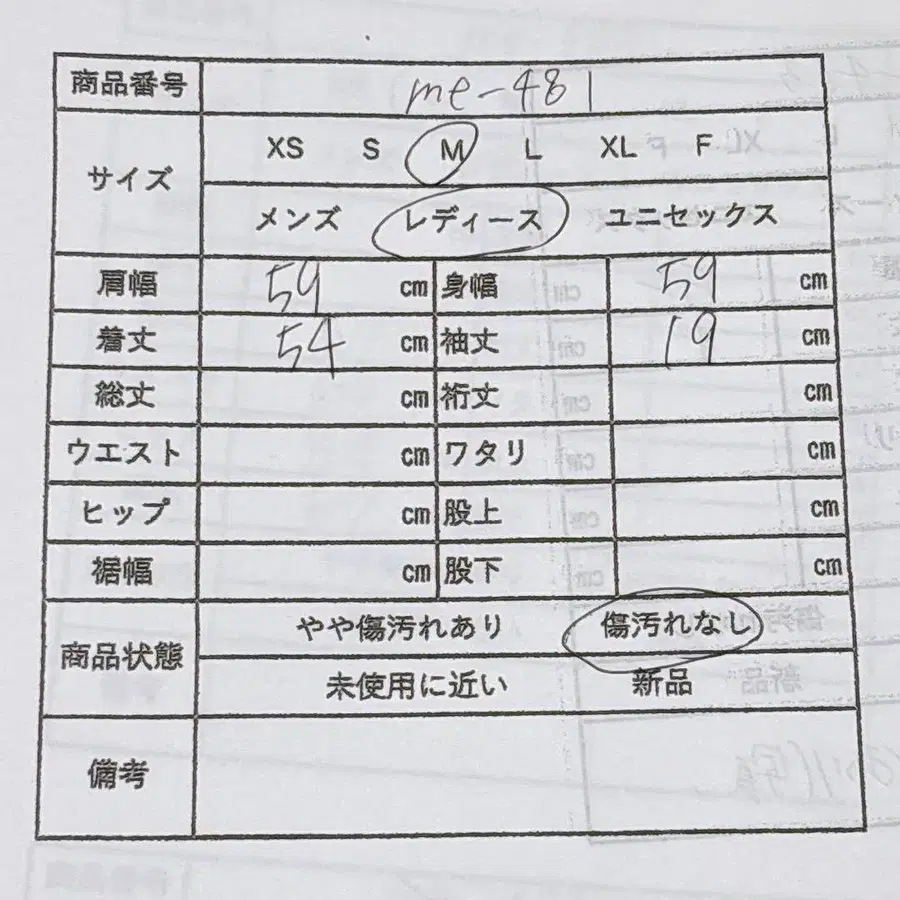 商品番号 me-481
サイズ XS S M L XL F
メンズ レディース ユニセックス
肩幅 59 cm 身幅 59 cm
着丈 54 cm 袖丈 19 cm
総丈 cm 裄丈 cm
ウエスト cm ワタリ cm
ヒップ cm 股上 cm
裾幅 cm 股下 cm
商品状態 やや傷汚れあり 傷汚れなし
未使用に近い 新品
備考